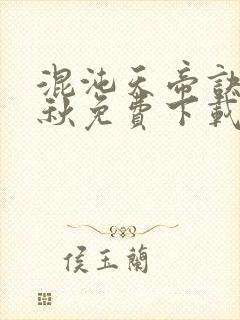 混沌天帝訣
秋免費下載
侯玉蘭